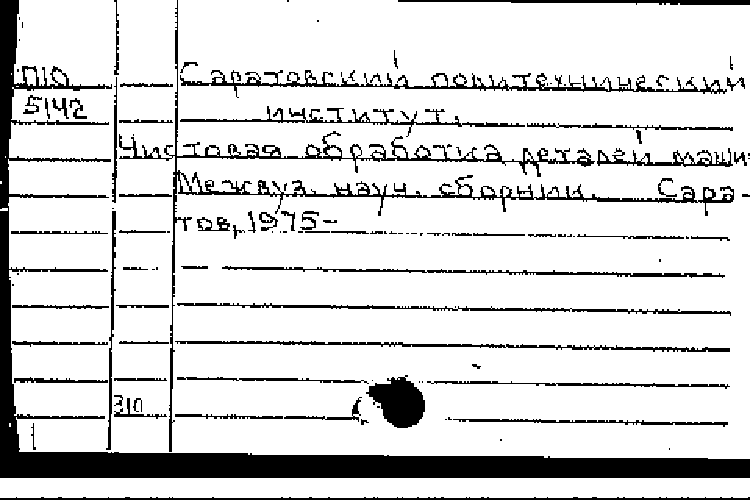 П10 Саратовский политехнический
5142 институт.
Чистовая обработка деталей маши-
Межвуз. науч. сборник. Сара-
тов, 1975-
310